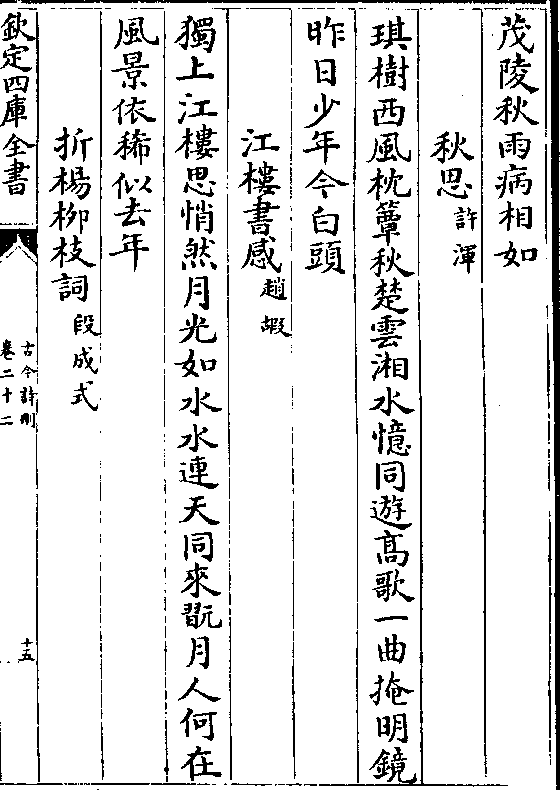 茂陵秋雨病相如
秋思許渾
琪樹西風枕簟秋楚雲湘水憶同遊髙歌一曲掩明鏡
昨日少年今白頭
江樓書感趙嘏
獨上江樓思悄然月光如水水連天同來翫月人何在
風景依稀似去年
折楊柳枝詞段成式
欽定四庫全書
古今詩刪
卷二十二
十五